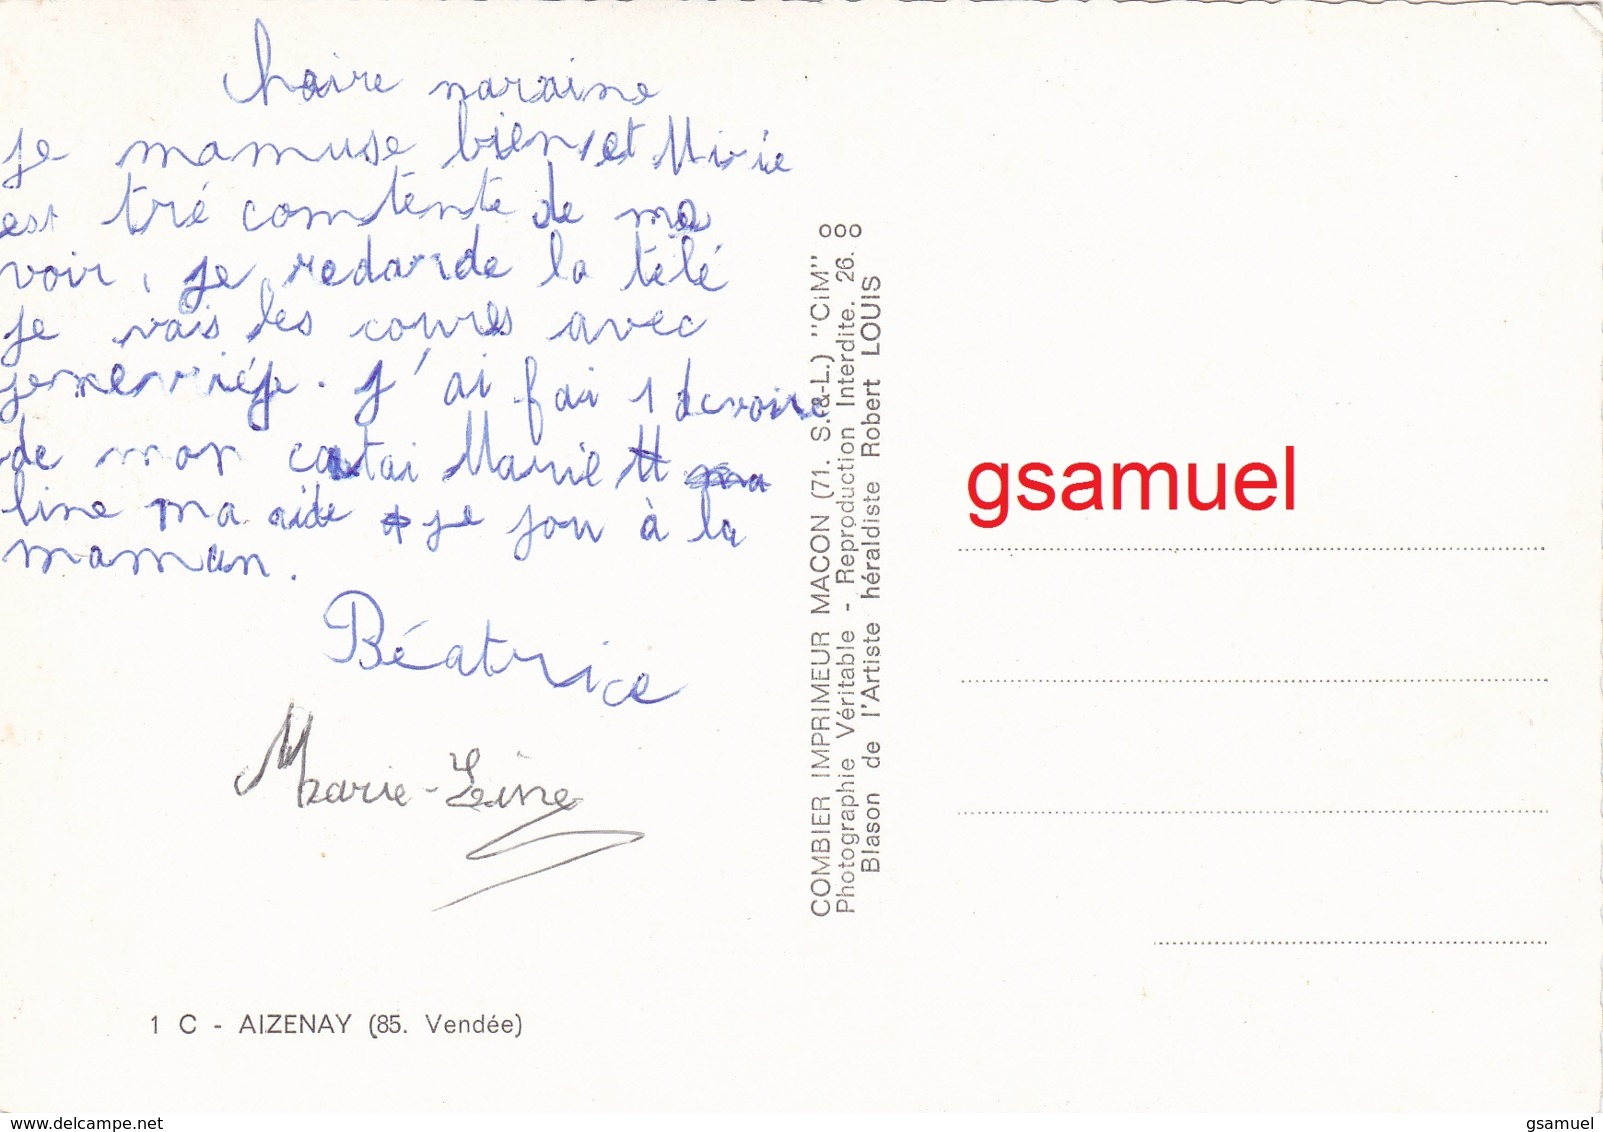 chaire naraine
je mamuse bien et Mirie
est tré contente de me
voir, je redarde la télé
je vais les courses avec
J'ai fai 1 devoire
de mon Marie
line ma aide je jou à la
maman.
Béatrice
Marie-Line
1 C - AIZENAY (85. Vendée)
COMBIER IMPRIMEUR MACON (71. S.-&-L.) "CiM"
Photographie Véritable - Reproduction Interdite. 26.
Blason de l'Artiste héraldiste Robert LOUIS
gsamuel
www.delcampe.net
gsamuel